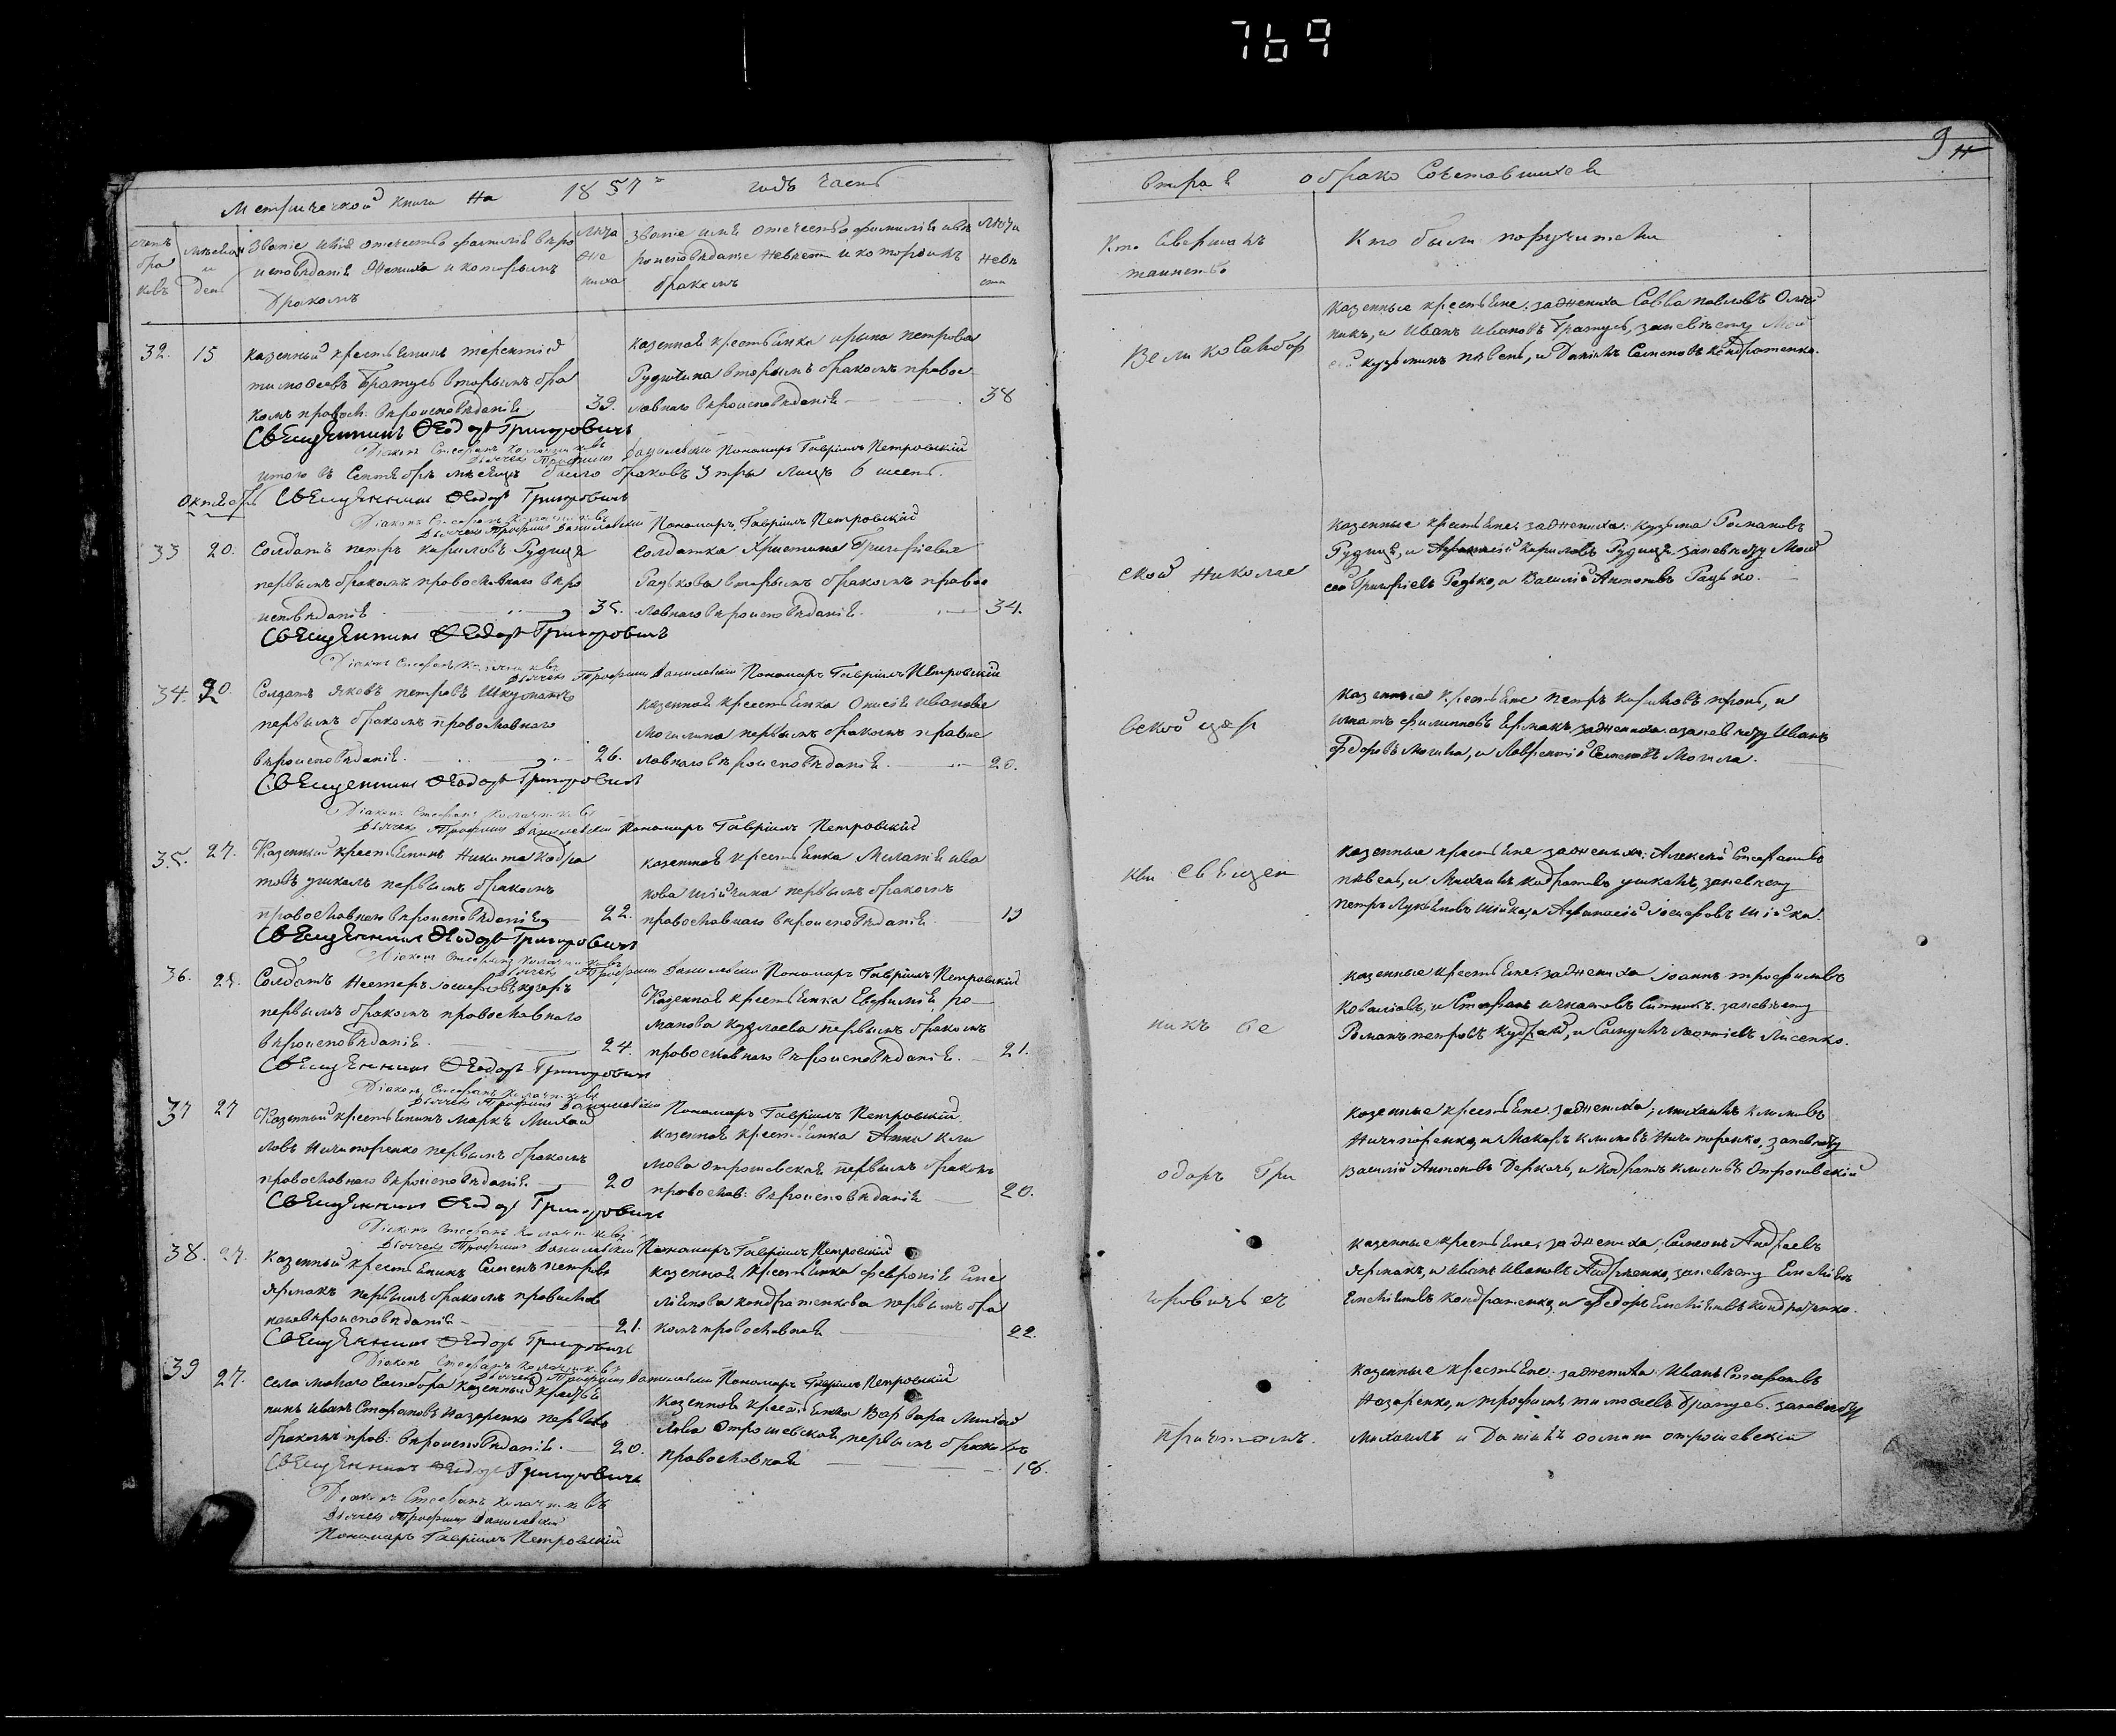 769
9
Метрической книги на 1857 годъ часть
второй о брако сочетавшихся
мѣсяц и день
Званіе имя отечество фамилія вѣро
исповѣданіе жениха и которымъ
бракомъ
лѣта
же
ниха
Званіе имя отечество фамилія и вѣ
роисповѣданіе невѣсты и которымъ
бракомъ
лѣта
невѣ
сты
Кто совершалъ
таинство
Кто были поручители
32. 15
казенный крестьянинъ терентій
тимофеевъ Братусь вторымъ бра
комъ правосл: вѣроисповѣданія 39.
казенная крестьянка ирына петрова
вторымъ бракомъ правос
лавнаго вѣроисповѣданія 38
Великосамбор
казенные крестьяне: за жениха Савва павловъ
никъ, и Иванъ Ивановъ Братусь, за невѣсту Мой
сей кузьминъ пивень, и Даніилъ Семеновъ кондратенко.
Священникъ Феодоръ Григоровичъ
Діаконъ Стефанъ
Дьячекъ Трофимъ Данилевскій Пономарь Гавріилъ Петровскій
итого въ Сентябрѣ мѣсяцѣ было браковъ 3 три лицъ 6 шесть.
Октябрь Священникъ Феодоръ Григоровичъ
Діаконъ Стефанъ
Дьячекъ Трофимъ Данилевскій Пономарь Гавріилъ Петровскій
33 20.
Солдатъ петръ кириловъ Рудица
первымъ бракомъ православнаго вѣро
исповѣданія 35.
Солдатка Христина Григоріева
Радькова вторымъ бракомъ право
лавнаго вѣроисповѣданія. 34.
ской Николае
казенные крестьяне: за жениха: кузьма Романовъ
Рудица, и кириловъ Рудица за невѣсту Мой
сей Григоріевъ Редько, и Василій Антоновъ Радько.
Священникъ Феодоръ Григоровичъ
Діаконъ Стефанъ
Дьячекъ Трофимъ Данилевскій Пономарь Гавріилъ Петровскій
34. 20.
Солдатъ яковъ петровъ Шкуматъ
первымъ бракомъ православнаго
вѣроисповѣданія. 26.
казенная крестьянка Онисія иванова
Могилина первымъ бракомъ правос
лавнаго вѣроисповѣданія. 20.
вской цер
казенные крестьяне петръ и
игнатъ филиповъ Ермакъ за жениха. а за невѣсту Иванъ
Федоровъ Могила, и Лаврентій Семеновъ Могила.
Священникъ Феодоръ Григоровичъ
Діаконъ Стефанъ
Дьячекъ Трофимъ Данилевскій Пономарь Гавріилъ Петровскій
35. 27.
Казенный крестьянинъ Никита кодра
товъ ушкалъ первымъ бракомъ
православнаго вѣроисповѣданія 22.
казенная крестьянка Миланія ива
нова первымъ бракомъ
православнаго вѣроисповѣданія. 19
кви Священ
казенные крестьяне за жениха: Алексѣй Стефановъ
пивень, и Михаилъ кодратовъ ушкалъ, за невѣсту
петръ Лукьяновъ Шійка, и Афанасій іосифовъ Шійка.
Священникъ Феодоръ Григоровичъ
Діаконъ Стефанъ
Дьячекъ Трофимъ Данилевскій Пономарь Гавріилъ Петровскій
36. 27.
Солдатъ Нестеръ
первымъ бракомъ православнаго
вѣроисповѣданія. 24.
Казенная крестьянка Евфимія ро
манова первымъ бракомъ
православнаго вѣроисповѣданія. 21.
никъ Фе
казенные крестьяне: за жениха іоаннъ трофимовъ
и Стефанъ игнатовъ за невѣсту
Романъ петровъ кудрай, и Самуилъ леонтіевъ Лисенко.
Священникъ Феодоръ Григоровичъ
Діаконъ Стефанъ
Дьячекъ Трофимъ Данилевскій Пономарь Гавріилъ Петровскій
37 27
Казенный крестьянинъ маркъ михай
ловъ Ничипоренко первымъ бракомъ
православнаго вѣроисповѣданія. 20
казенная крестьянка Анна кли
мова отрошевская первымъ бракомъ
православ: вѣроисповѣданія 20.
одоръ Гри
казенные крестьяне: за жениха, михаилъ климовъ
Ничипоренко, и Макаръ климовъ Ничипоренко, за невѣсту
василій Антоновъ Деркачъ, и кодратъ климовъ Отрошевскій
Священникъ Феодоръ Григоровичъ
Діаконъ Стефанъ
Дьячекъ Трофимъ Данилевскій Пономарь Гавріилъ Петровскій
38. 27.
казенный крестьянинъ Семенъ петровъ
Ярмакъ первымъ бракомъ православ
наго вѣроисповѣданія 21.
казенная крестьянка февронія Еме
ліянова кондратенкова первымъ бра
комъ православная 22.
горовичь съ
казенные крестьяне, за жениха, Симеонъ Андреевъ
Ярмакъ, и Иванъ Ивановъ за невѣсту
Емеліяновъ кондратенко, и Федоръ Емеліяновъ кондратенко.
Священникъ Феодоръ Григоровичъ
Діаконъ Стефанъ
Дьячекъ Трофимъ Данилевскій Пономарь Гавріилъ Петровскій
39 27.
села малого Самбора казенный крестья
нинъ Иванъ Стефановъ Назаренко первымъ
бракомъ прав: вѣроисповѣданія. 20.
казенная крестьянка Варвара Михай
лова Отрошевская, первымъ бракомъ
православная 18.
причтомъ.
казенные крестьяне: за жениха: Иванъ Стефановъ
Назаренко, и трофимъ тимофеевъ Братусь. за невѣсту
михаилъ и Даніилъ отрошевскій
Священникъ Феодоръ Григоровичъ
Діаконъ Стефанъ
Дьячекъ Трофимъ Данилевскій
Пономарь Гавріилъ Петровскій